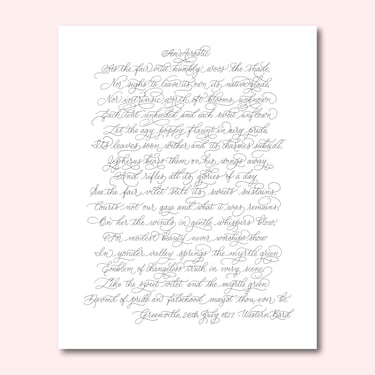 An Acrostic
As the fair violet humbly woos the shade,
Nor sighs to leave its own its native glade,
Nor intrinsic worth oft blooms unknown
Each tint unheeded and each sweet unflown
Let the gay poppy flaunt in airy pride
It's leaves soon wither and its charms subside,
Zephyrus bears them on his wings away
And rifles all its glories of a day
See the fair violet still its sweets sustains
Courts not our gaze and what it was remains
On her the winds in gentle whispers blow!
For modest beauty never worships show
In yonder valley springs the myrtle green
Emblem of changeless truth in every scene
Like the sweet violet and the myrtle green
Devoid of pride or falsehood mayst thou ever be
Greenville, 26th July 1827 Western Bard